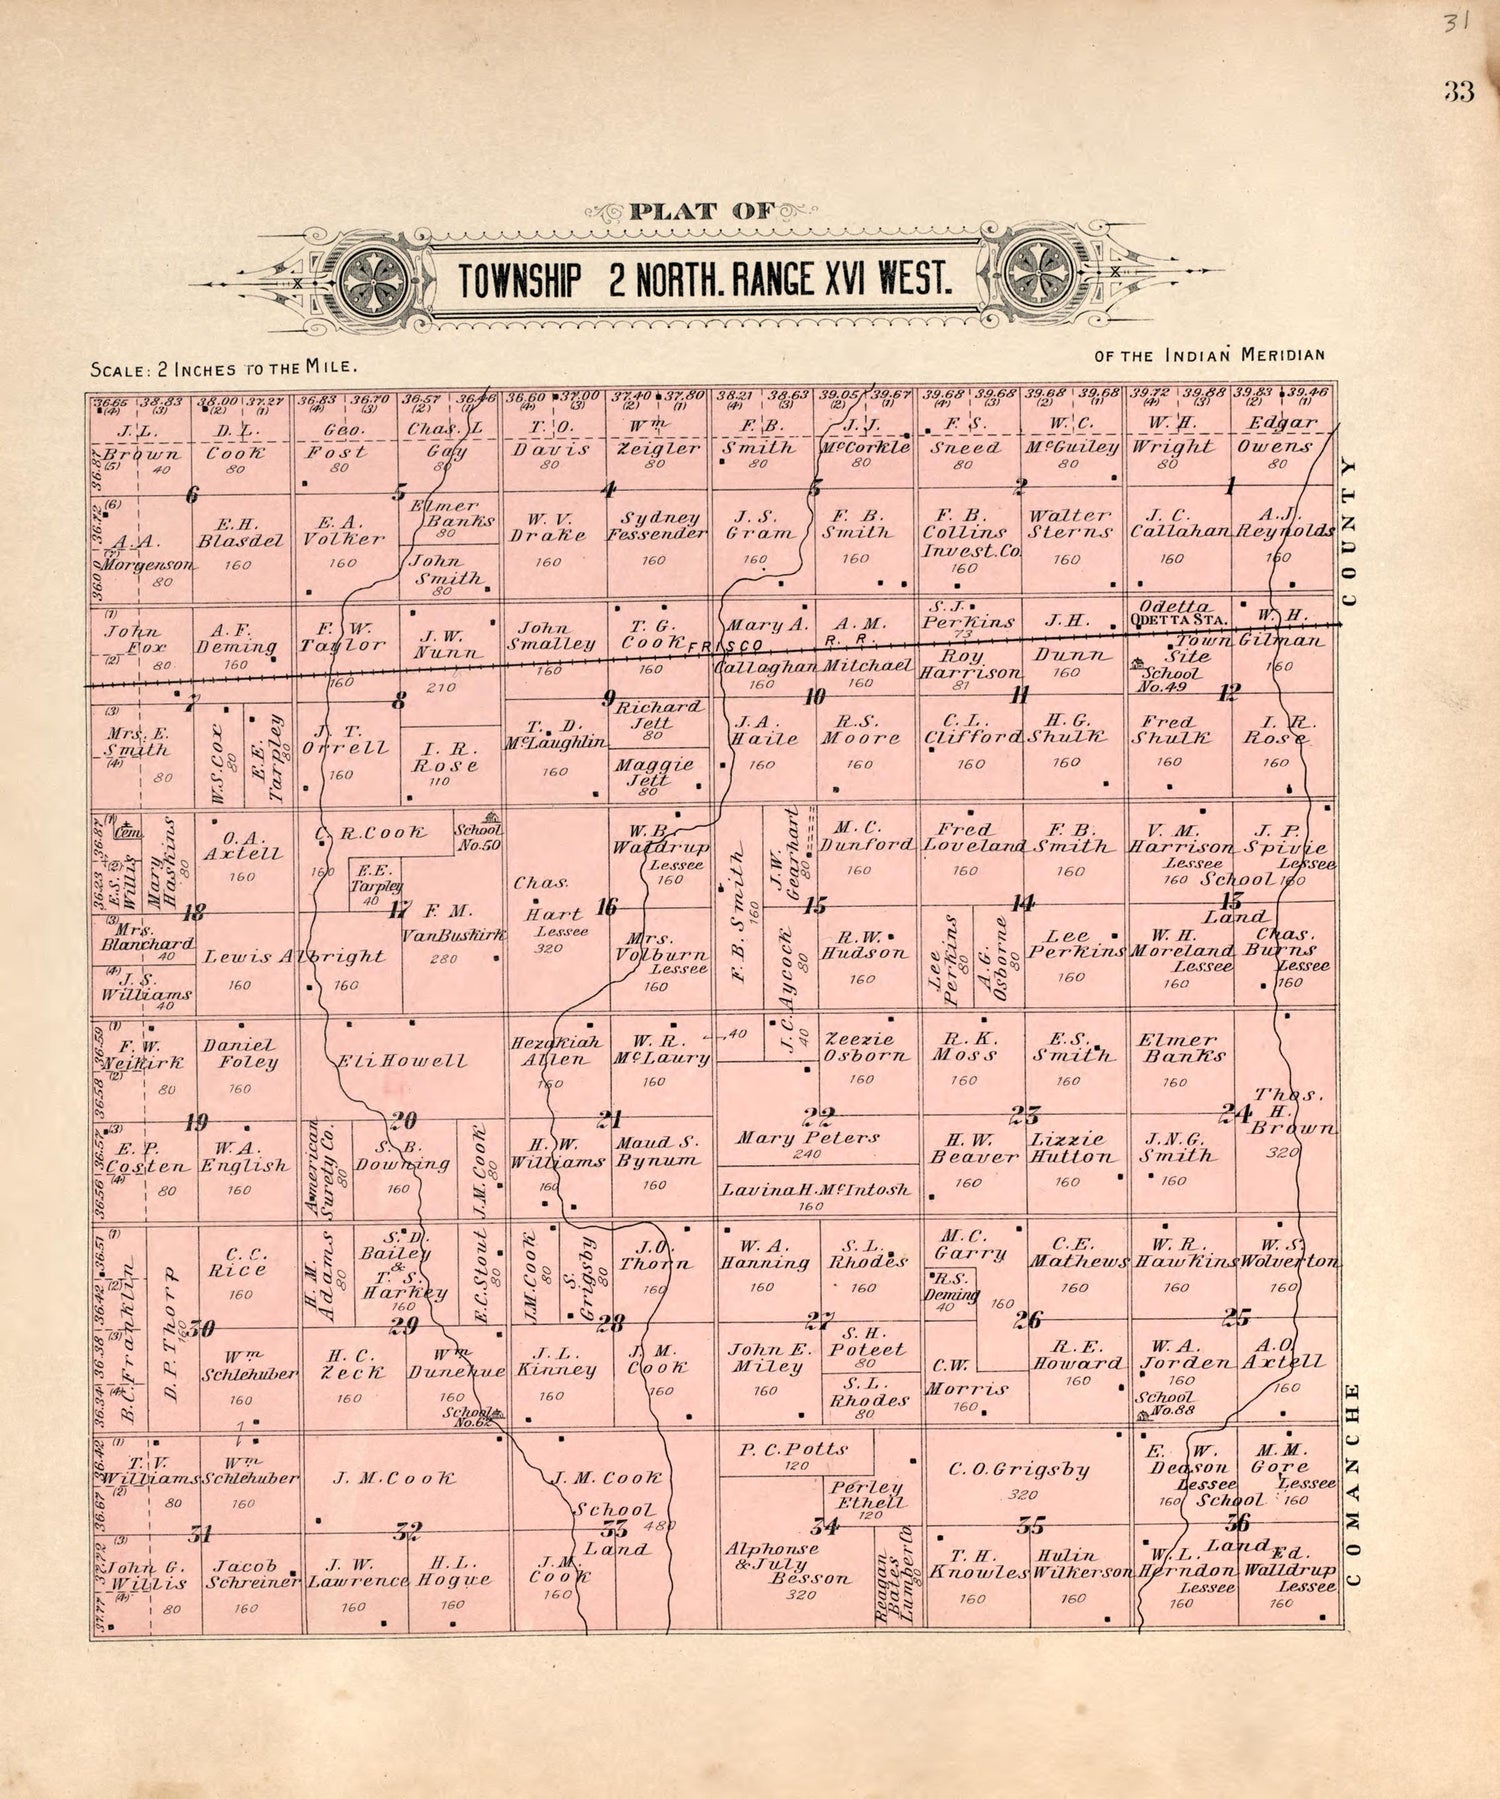 31
33
PLAT OF
TOWNSHIP 2 NORTH. RANGE XVI WEST.
SCALE: 2 INCHES TO THE MILE.
OF THE INDIAN MERIDIAN
36.65 38.83 38.00 37.27 36.83 36.70 36.57 36.46 36.60 37.00 37.40 37.80 38.21 38.63 39.05 39.67 39.68 39.68 39.68 39.68 39.72 39.88 39.83 39.46
(4) (3) (2) (1) (4) (3) (2) (1) (4) (3) (2) (1) (4) (3) (2) (1) (4) (3) (2) (1) (4) (3) (2) (1)
J. L. D. L. Geo. Chas. L T. O. Wm F. B. J. J. F. S. W. C. W. H. Edgar
Brown Cook Fost Gay Davis Zeigler Smith McCorkle Sneed McGuiley Wright Owens
40 80 80 80 80 80 80 80 80 80 80 80
6 5 4 3 2 1
A. A. Morgenson 80
E. H. Blasdel 160
E. A. Volker 160
Elmer Banks 80
John Smith 80
W. V. Drake 160
Sydney Fessender 160
J. S. Gram 160
F. B. Smith 160
F. B. Collins Invest. Co. 160
Walter Sterns 160
J. C. Callahan
A. J. Reynolds 160
COUNTY
John Fox 80
A. F. Deming 160
F. W. Taylor 160
J. W. Nunn 210
John Smalley 160
T. G. Cook 160
FRISCO R. R.
Mary A. Callaghan 160
A. M. Mitchael 160
S. J. Perkins 73
Roy Harrison 87
J. H. Dunn 160
Odetta
ODETTA STA.
Town Site
School No. 49
W. H. Gilman 160
7 8 9 10 11 12
Mrs. E. Smith 80
W. S. Cox 80
E. E. Tarpley 80
J. T. Orrell 160
I. R. Rose 110
T. D. McLaughlin 160
Richard Jett 80
Maggie Jett 80
J. A. Haile 160
R. S. Moore 160
C. L. Clifford 160
H. G. Shulk 160
Fred Shulk 160
I. R. Rose 160
Cem.
E. S. Willis
Mary Haskins 80
O. A. Axtell 160
C. R. Cook 160
School No. 50
E. E. Tarpley 40
Chas. Hart Lessee 320
W. B. Waldrup Lessee 160
F. B. Smith 160
J. W. Gearhart 80
M. C. Dunford 160
Fred Loveland 160
F. B. Smith 160
V. M. Harrison Lessee 160
J. P. Spivie Lessee 160
School Land
18 17 16 15 14 13
Mrs. Blanchard 40
J. S. Williams 40
Lewis Albright 160 160
F. M. VanBuskirk 280
Mrs. Volburn Lessee 160
J. C. Aycock 80
R. W. Hudson 160
Lee Perkins 80
A. G. Osborne 80
Lee Perkins 160
W. H. Moreland Lessee 160
Chas. Burns Lessee 160
F. W. Neikirk 80
Daniel Foley 160
Eli Howell
Hezakiah Allen 160
W. R. McLaury 160
40
40
Zeezie Osborn 160
R. K. Moss 160
E. S. Smith 160
Elmer Banks 160
Thos. H. Brown 320
19 20 21 22 23 24
E. P. Costen 80
W. A. English 160
American Surety Co. 80
S. B. Downing 160
J. M. Cook 80
H. W. Williams 160
Maud S. Bynum 160
Mary Peters 240
Lavina H. McIntosh 160
H. W. Beaver 160
Lizzie Hutton 160
J. N. G. Smith 160
B. C. Franklin
D. P. Thorp 160
C. C. Rice 160
H. M. Adams 80
S. D. Bailey & T. S. Harkey 160
E. C. Stout 80
J. M. Cook 80
S. Grigsby 80
J. O. Thorn 160
W. A. Hanning 160
S. L. Rhodes 160
M. C. Garry 160
R. S. Deming 40
C. E. Mathews 160
W. R. Hawkins 160
W. S. Wolverton 160
30 29 28 27 26 25
Wm Schlehuber 160
H. C. Zeck 160
Wm Dunehue 160
School No. 62
J. L. Kinney 160
J. M. Cook 160
John E. Miley 160
S. H. Poteet 80
S. L. Rhodes 80
C. W. Morris 160
R. E. Howard 160
W. A. Jorden 160
School No. 88
A. O. Axtell 160
COMANCHE
T. V. Williams 80
Wm Schlehuber 160
J. M. Cook
J. M. Cook
School Land 480
P. C. Potts 120
Perley Ethell 120
C. O. Grigsby 320
E. W. Deason Lessee 160
M. M. Gore Lessee 160
School Land
31 32 33 34 35 36
John G. Willis 80
Jacob Schreiner 160
J. W. Lawrence 160
H. L. Hogue 160
J. M. Cook 160
Alphonse & July Besson 320
Reagan Bates Lumber Co. 80
T. H. Knowles 160
Hulin Wilkerson 160
W. L. Herndon Lessee 160
Ed. Walldrup Lessee 160